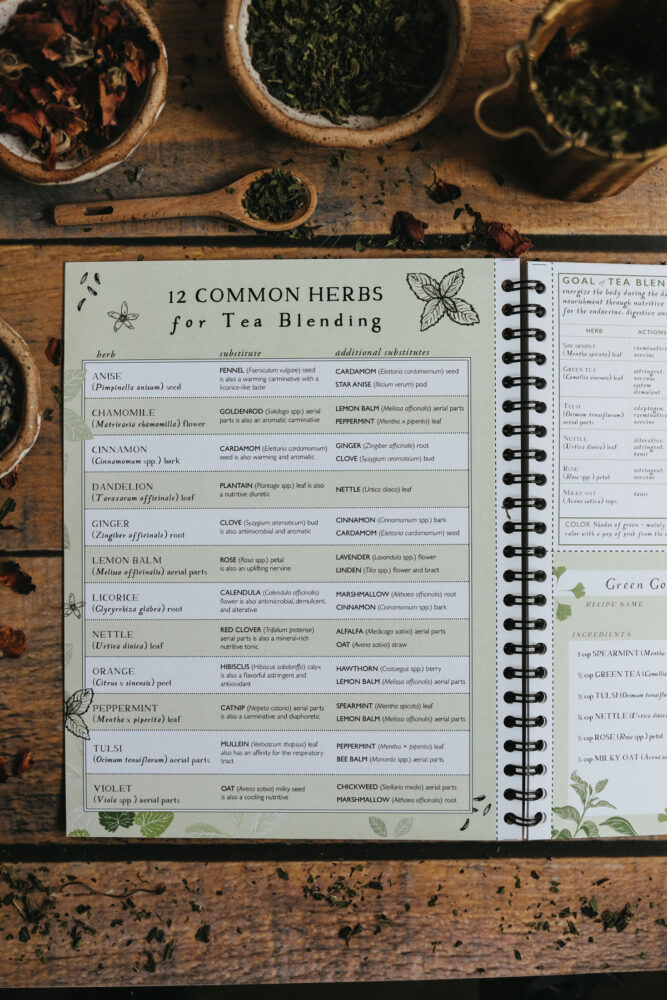 12 COMMON HERBS
for Tea Blending
herb substitute additional substitutes
ANISE
(Pimpinella anisum) seed
FENNEL (Foeniculum vulgare) seed
is also a warming carminative with a
licorice-like taste
CARDAMOM (Elettaria cardamomum) seed
STAR ANISE (Illicium verum) pod
CHAMOMILE
(Matricaria chamomilla) flower
GOLDENROD (Solidago spp.) aerial
parts is also an aromatic carminative
LEMON BALM (Melissa officinalis) aerial parts
PEPPERMINT (Mentha x piperita) leaf
CINNAMON
(Cinnamomum spp.) bark
CARDAMOM (Elettaria cardamomum)
seed is also warming and aromatic
GINGER (Zingiber officinale) root
CLOVE (Syzygium aromaticum) bud
DANDELION
(Taraxacum officinale) leaf
PLANTAIN (Plantago spp.) leaf is also
a nutritive diuretic
NETTLE (Urtica dioica) leaf
GINGER
(Zingiber officinale) root
CLOVE (Syzygium aromaticum) bud
is also antimicrobial and aromatic
CINNAMON (Cinnamomum spp.) bark
CARDAMOM (Elettaria cardamomum) seed
LEMON BALM
(Melissa officinalis) aerial parts
ROSE (Rosa spp.) petal
is also an uplifting nervine
LAVENDER (Lavandula spp.) flower
LINDEN (Tilia spp.) flower and bract
LICORICE
(Glycyrrhiza glabra) root
CALENDULA (Calendula officinalis)
flower is also antimicrobial, demulcent,
and alterative
MARSHMALLOW (Althaea officinalis) root
CINNAMON (Cinnamomum spp.) bark
NETTLE
(Urtica dioica) leaf
RED CLOVER (Trifolium pratense)
aerial parts is also a mineral-rich
nutritive tonic
ALFALFA (Medicago sativa) aerial parts
OAT (Avena sativa) straw
ORANGE
(Citrus x sinensis) peel
HIBISCUS (Hibiscus sabdariffa) calyx
is also a flavorful astringent and
antioxidant
HAWTHORN (Crataegus spp.) berry
LEMON BALM (Melissa officinalis) aerial parts
PEPPERMINT
(Mentha x piperita) leaf
CATNIP (Nepeta cataria) aerial parts
is also a carminative and diaphoretic
SPEARMINT (Mentha spicata) leaf
LEMON BALM (Melissa officinalis) aerial parts
TULSI
(Ocimum tenuiflorum) aerial parts
MULLEIN (Verbascum thapsus) leaf
also has an affinity for the respiratory
tract
PEPPERMINT (Mentha x piperita) leaf
BEE BALM (Monarda spp.) aerial parts
VIOLET
(Viola spp.) aerial parts
OAT (Avena sativa) milky seed
is also a cooling nutritive
CHICKWEED (Stellaria media) aerial parts
MARSHMALLOW (Althaea officinalis) root
GOAL of TEA BLEN
energize the body during the da
nourishment through nutritive
for the endocrine, digestive an
HERB ACTIONS
SPEARMINT
(Mentha spicata) leaf
carminative
nervine
GREEN TEA
(Camellia sinensis) leaf
astringent,
nervous
system
stimulant
TULSI
(Ocimum tenuiflorum)
aerial parts
adaptogen,
carminative
nervine
NETTLE
(Urtica dioica) leaf
alterative,
astringent,
tonic
ROSE
(Rosa spp.) petal
astringent,
nervine
MILKY OAT
(Avena sativa) tops
tonic
COLOR Shades of green - mainly
color with a pop of pink from the
Green Go
RECIPE NAME
INGREDIENTS
1 cup SPEARMINT (Mentha
GREEN TEA (Camel
TULSI (Ocimum tenuifl
NETTLE (Urtica dioic
ROSE (Rosa spp.) petal
MILKY OAT (Avena s